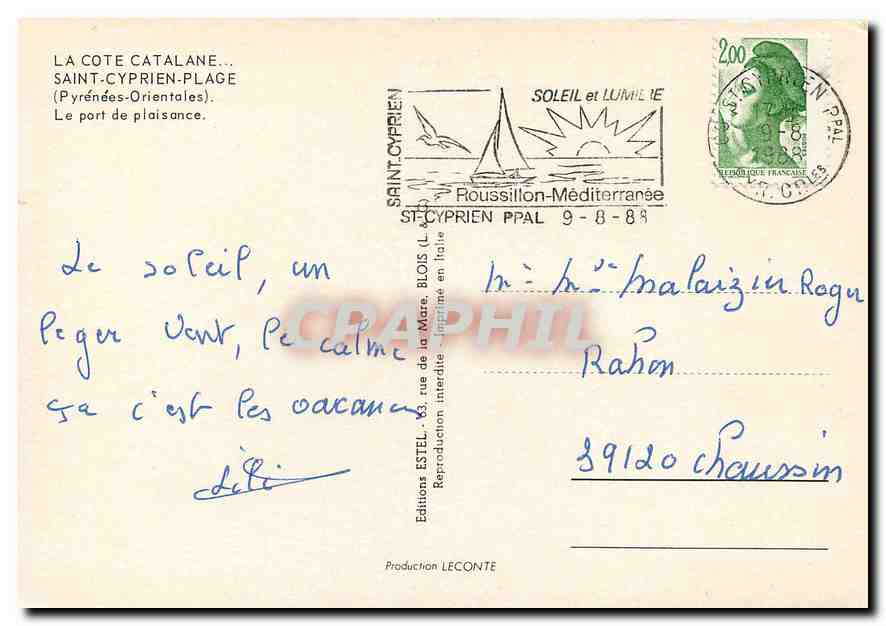 LA COTE CATALANE...
SAINT-CYPRIEN-PLAGE
(Pyrénées-Orientales).
Le port de plaisance.
SAINT-CYPRIEN
SOLEIL et LUMIERE
Roussillon-Méditerranée
ST-CYPRIEN PPAL 9-8-88
2,00
REPUBLIQUE FRANCAISE
ST CYPRIEN PPAL
9-8
1988
PYR. ORles
Le soleil, un
leger vent, le calme
ça c'est les vacances
Lili
Editions ESTEL - 63, rue de la Mare, BLOIS (L. & C.)
Reproduction interdite Imprimé en Italie
CPAPHIL
Mr Mme Malaizier Roger
Rahon
39120 Chaussin
Production LECONTE